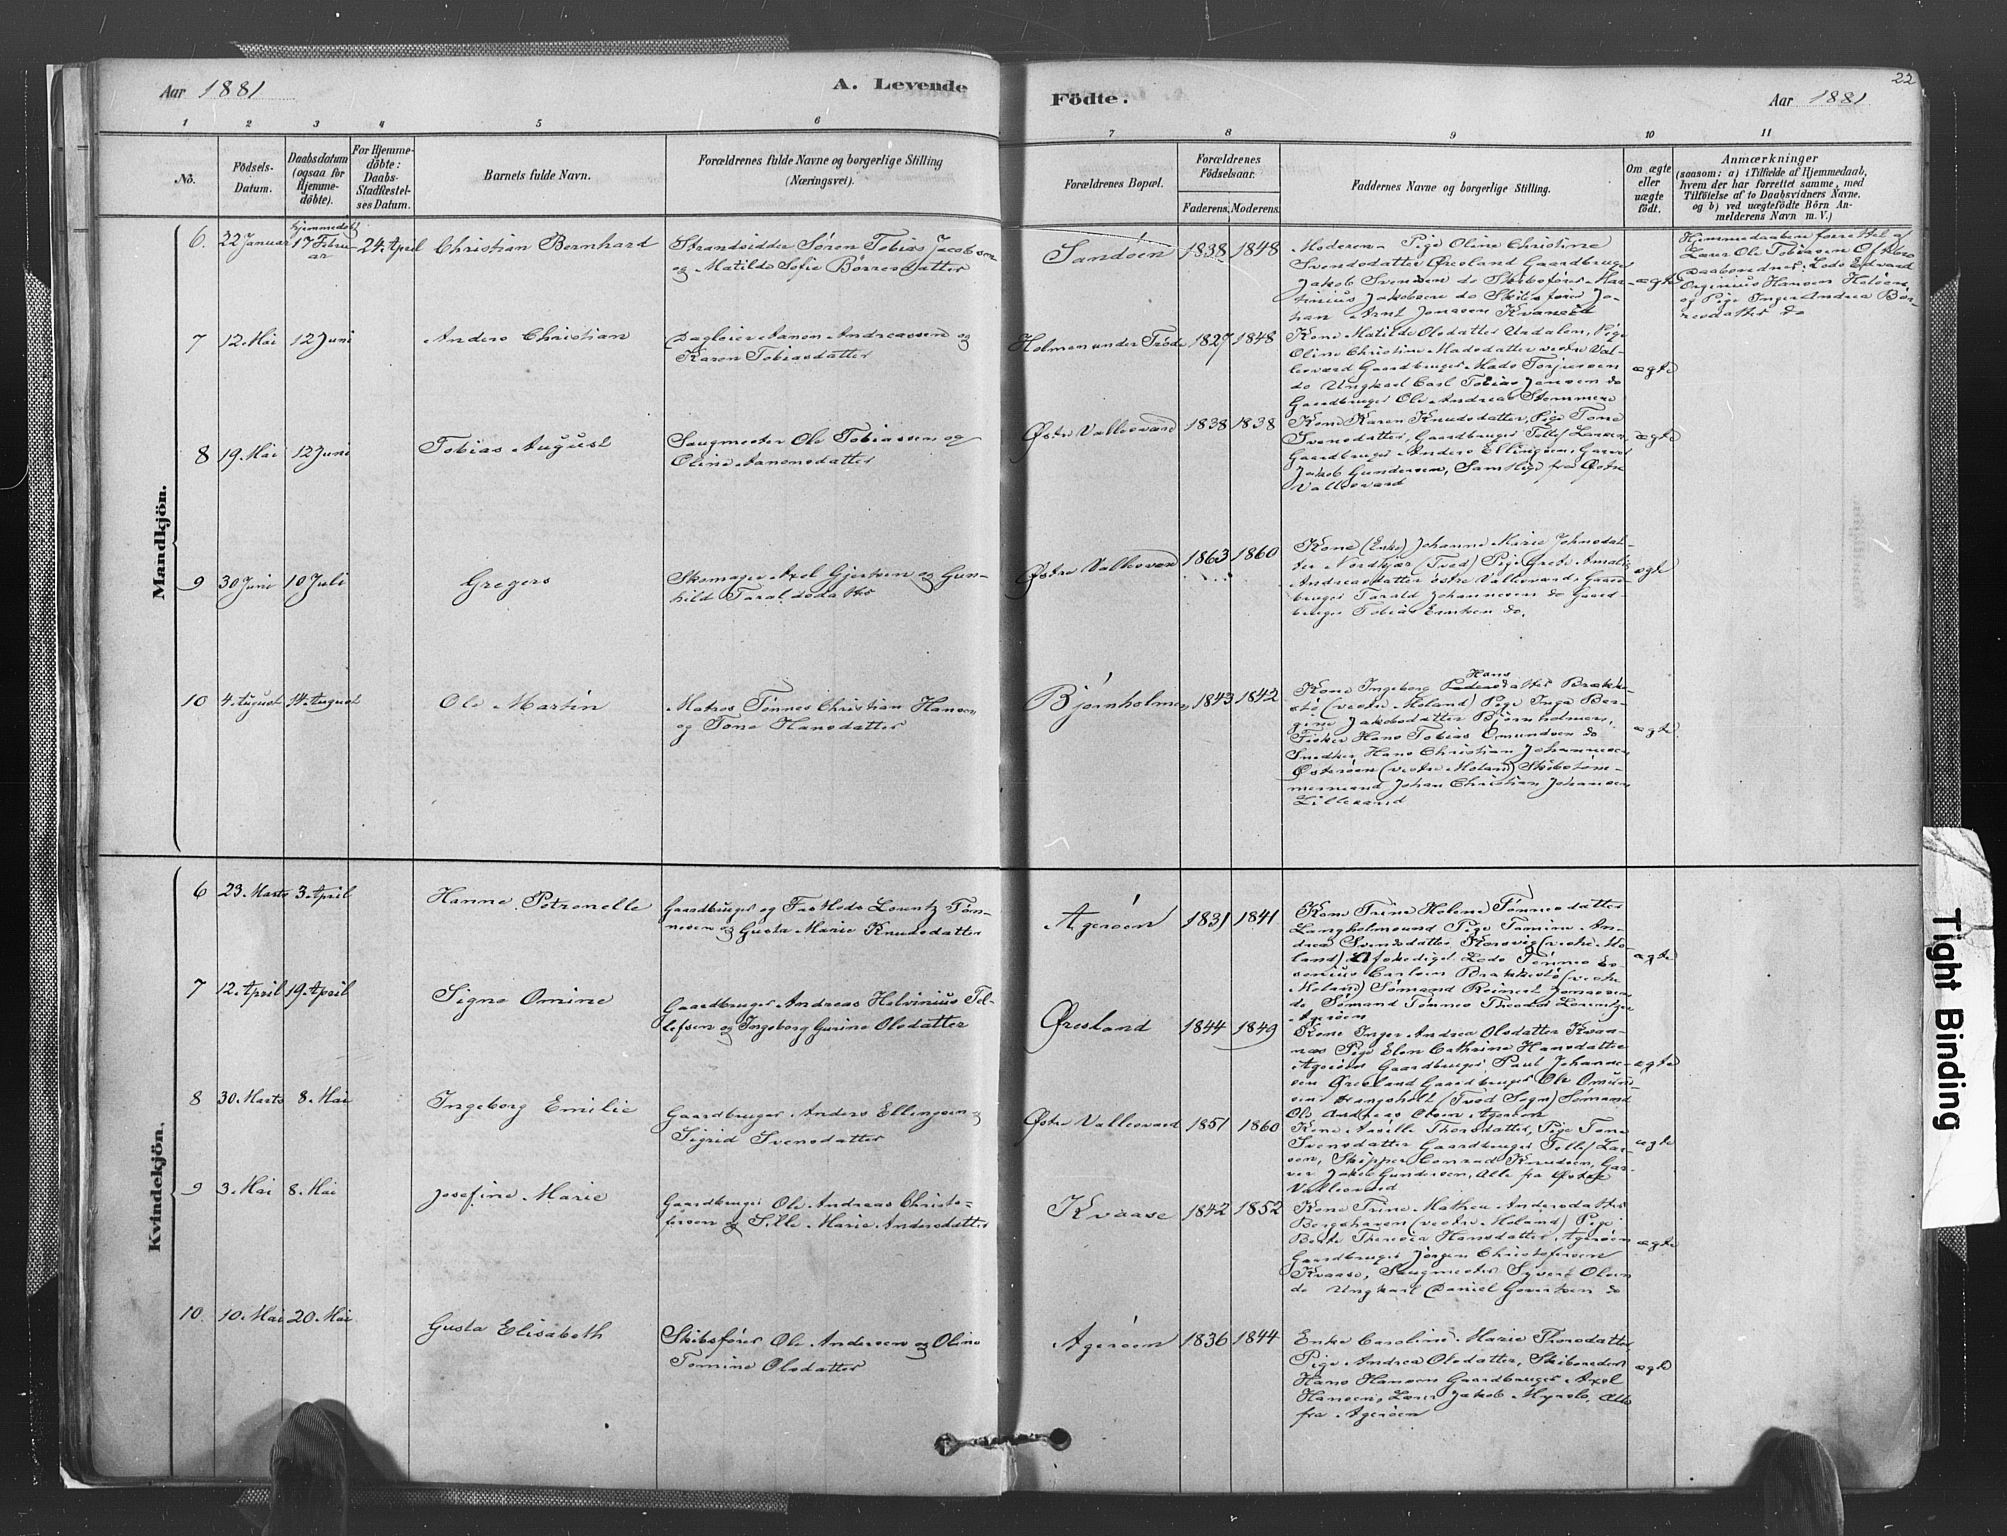 Aar 1881
A. Levende
Födte.
Aar 1881
22
1 2 3 4 5 6 7 8 9 10 11
No.
Födsels-
Datum.
Daabsdatum
(ogsaa for
Hjemme-
döbte).
For Hjemme-
döbte:
Daabs-
Stadfæstel-
ses Datum.
Barnets fulde Navn.
Forældrenes fulde Navne og borgerlige Stilling
(Næringsvei).
Forældrenes Bopæl.
Forældrenes
Födselsaar.
Faderens. Moderens.
Faddernes Navne og borgerlige Stilling.
Om ægte
eller
uægte
födt.
Anmærkninger
(saasom: a) i Tilfælde af Hjemmedaab,
hvem der har forrettet samme, med
Tilföielse af to Daabsvidners Navne,
og b) ved uægtefödte Börn An-
melderens Navn m. V.)
Mandkjön.
6. 22 Januar
Hjemmedøbt
17 Febru
ar
24 April
Christian Bernhard
Strandsidder Søren Tobias Jacobsen
og Matilde Sofie Börresdatter
Sandøen 1838 1848
Moderen Pige Oline Christine
Svendsdatter Øresland Gaardbruger
Jakob Svendsen do Skibsfører Mar-
tinius Jakobsen do Skibsfører Jo-
han Arnt Jonassen Kvanæs
ægte
Hjemmedaaben forrettet af
Lærer Ole Tobiassen
Daabsvidner: Lods Edvard
Hansen
og Pige Inger Andrea Bör-
resdatter do
7 12. Mai 12 Juni
Anders Christian
Dagleier Aanon Andreassen og
Karen Tobiasdatter
Holmen under Trøde 1827 1848
Kone Matilde Olsdatter Uddalen, Pige
Oline Christine Madsdatter vestre Val-
lesværd Gaardbruger Mads Torjussen
do Ungkarl Carl Tobias Jensen do
Gaardbruger Ole Andreas
ægte
8 19. Mai 12 Juni
Tobias August
Saugmester Ole Tobiassen og
Oline Aanonsdatter
Østre Vallesværd 1838 1838
Kone Karen Knudsdatter, Pige Tone
Svensdatter, Gaardbruger Tellef Larsen,
Gaardbruger Anders Ellingsen,
Jakob Gundersen, Samtlige fra Østre
Vallesværd
ægte
9 30 Juni 10 Juli
Gregers
Skomager Axel Gjertsen og Gun-
hild Taraldsdatter
Østre Vallesværd 1863 1860
Kone (Enke) Johanne Marie Johnsdat-
ter (Tved) Pige Grete Amalie
Andreasdatter østre Vallesværd, Gaard-
bruger Tarald Johannessen do Gaard-
bruger Tobias do.
ægte
10 4 August 14 August
Ole Martin
Matros Tønnes Christian Hansen
og Tone Hansdatter
Bjørnholmen 1843 1842
Hans
Kone Ingeborg datter Brække-
stø (vestre Moland) Pige Inga Ber-
gine Jakobsdatter Bjørnholmen,
Fisker Hans Tobias Omundsen do
Snedker Hans Christian Johannesen
Østerøen (vestre Moland) Skibstøm-
mermand Johan Christian Johansen
Lillesand
ægte
Kvindekjön.
6 23. Marts 3. April
Hanne Petronelle
Gaardbruger og Lorentz Tøn-
nesen og Gusta Marie Knudsdatter
Agerøen 1831 1841
Kone Trine Helene Tønnesdatter
Langholmsund Pige Tomine An-
drea Svendsdatter, Korsvig (vestre Mo-
land) Afskediget Lods Tønnes
Carlsen Brækkestø (vestre
Moland) Sømand Reinert Jonassen
do Sømand Tønnes Theodor Lorentzen
Agerøen
ægte
7 12. April 19. April
Signe Omine
Gaardbruger Andreas Helvinius Tel-
lefsen og Ingeborg Gurine Olsdatter
Øresland 1844 1849
Kone Inger Andrea Olsdatter Kvaa-
næs Pige Elen Cathrine Hansdatter
Agerøen Gaardbruger Paul Johanne-
sen Øresland Gaardbruger Ole Omund-
sen Hangsholt (Tved Sogn) Sømand
Ole Andreas Olsen Agerøen
ægte
8 30. Marts 8. Mai
Ingeborg Emilie
Gaardbruger Anders Ellingsen og
Sigrid Svensdatter
Østre Vallesværd 1851 1860
Kone Thorsdatter, Pige Tone
Svensdatter Gaardbruger Tellef Lar-
sen, Skipper Conrad Knudsen, Gar-
ver Jakob Gundersen, Alle fra Østre
Vallesværd
ægte
9 3. Mai 8. Mai
Josefine Marie
Gaardbruger Ole Andreas Christo-
fersen og Sille Marie Andersdatter
Kvaase 1842 1852
Kone Trine Mathea Andersdatter
Bergshaven (vestre Moland) Pige
Berte Theresea Hansdatter, Agerøen
Gaardbruger Jørgen Christofersen
Kvaase, Saugmester Syvert Olsen
do Ungkarl Daniel Govertsen do
ægte
10. 10. Mai 20. Mai
Gusta Elisabeth
Skibsfører Ole Andersen og Oline
Tomine Olsdatter
Agerøen 1836 1844
Enke Caroline Marie Thorsdatter,
Pige Andrea Olsdatter, Skibsreder
Hans Hansen Gaardbruger Axel
Hansen, Lærer Jakob Myreb, Alle
fra Agerøen
ægte
Tight Binding